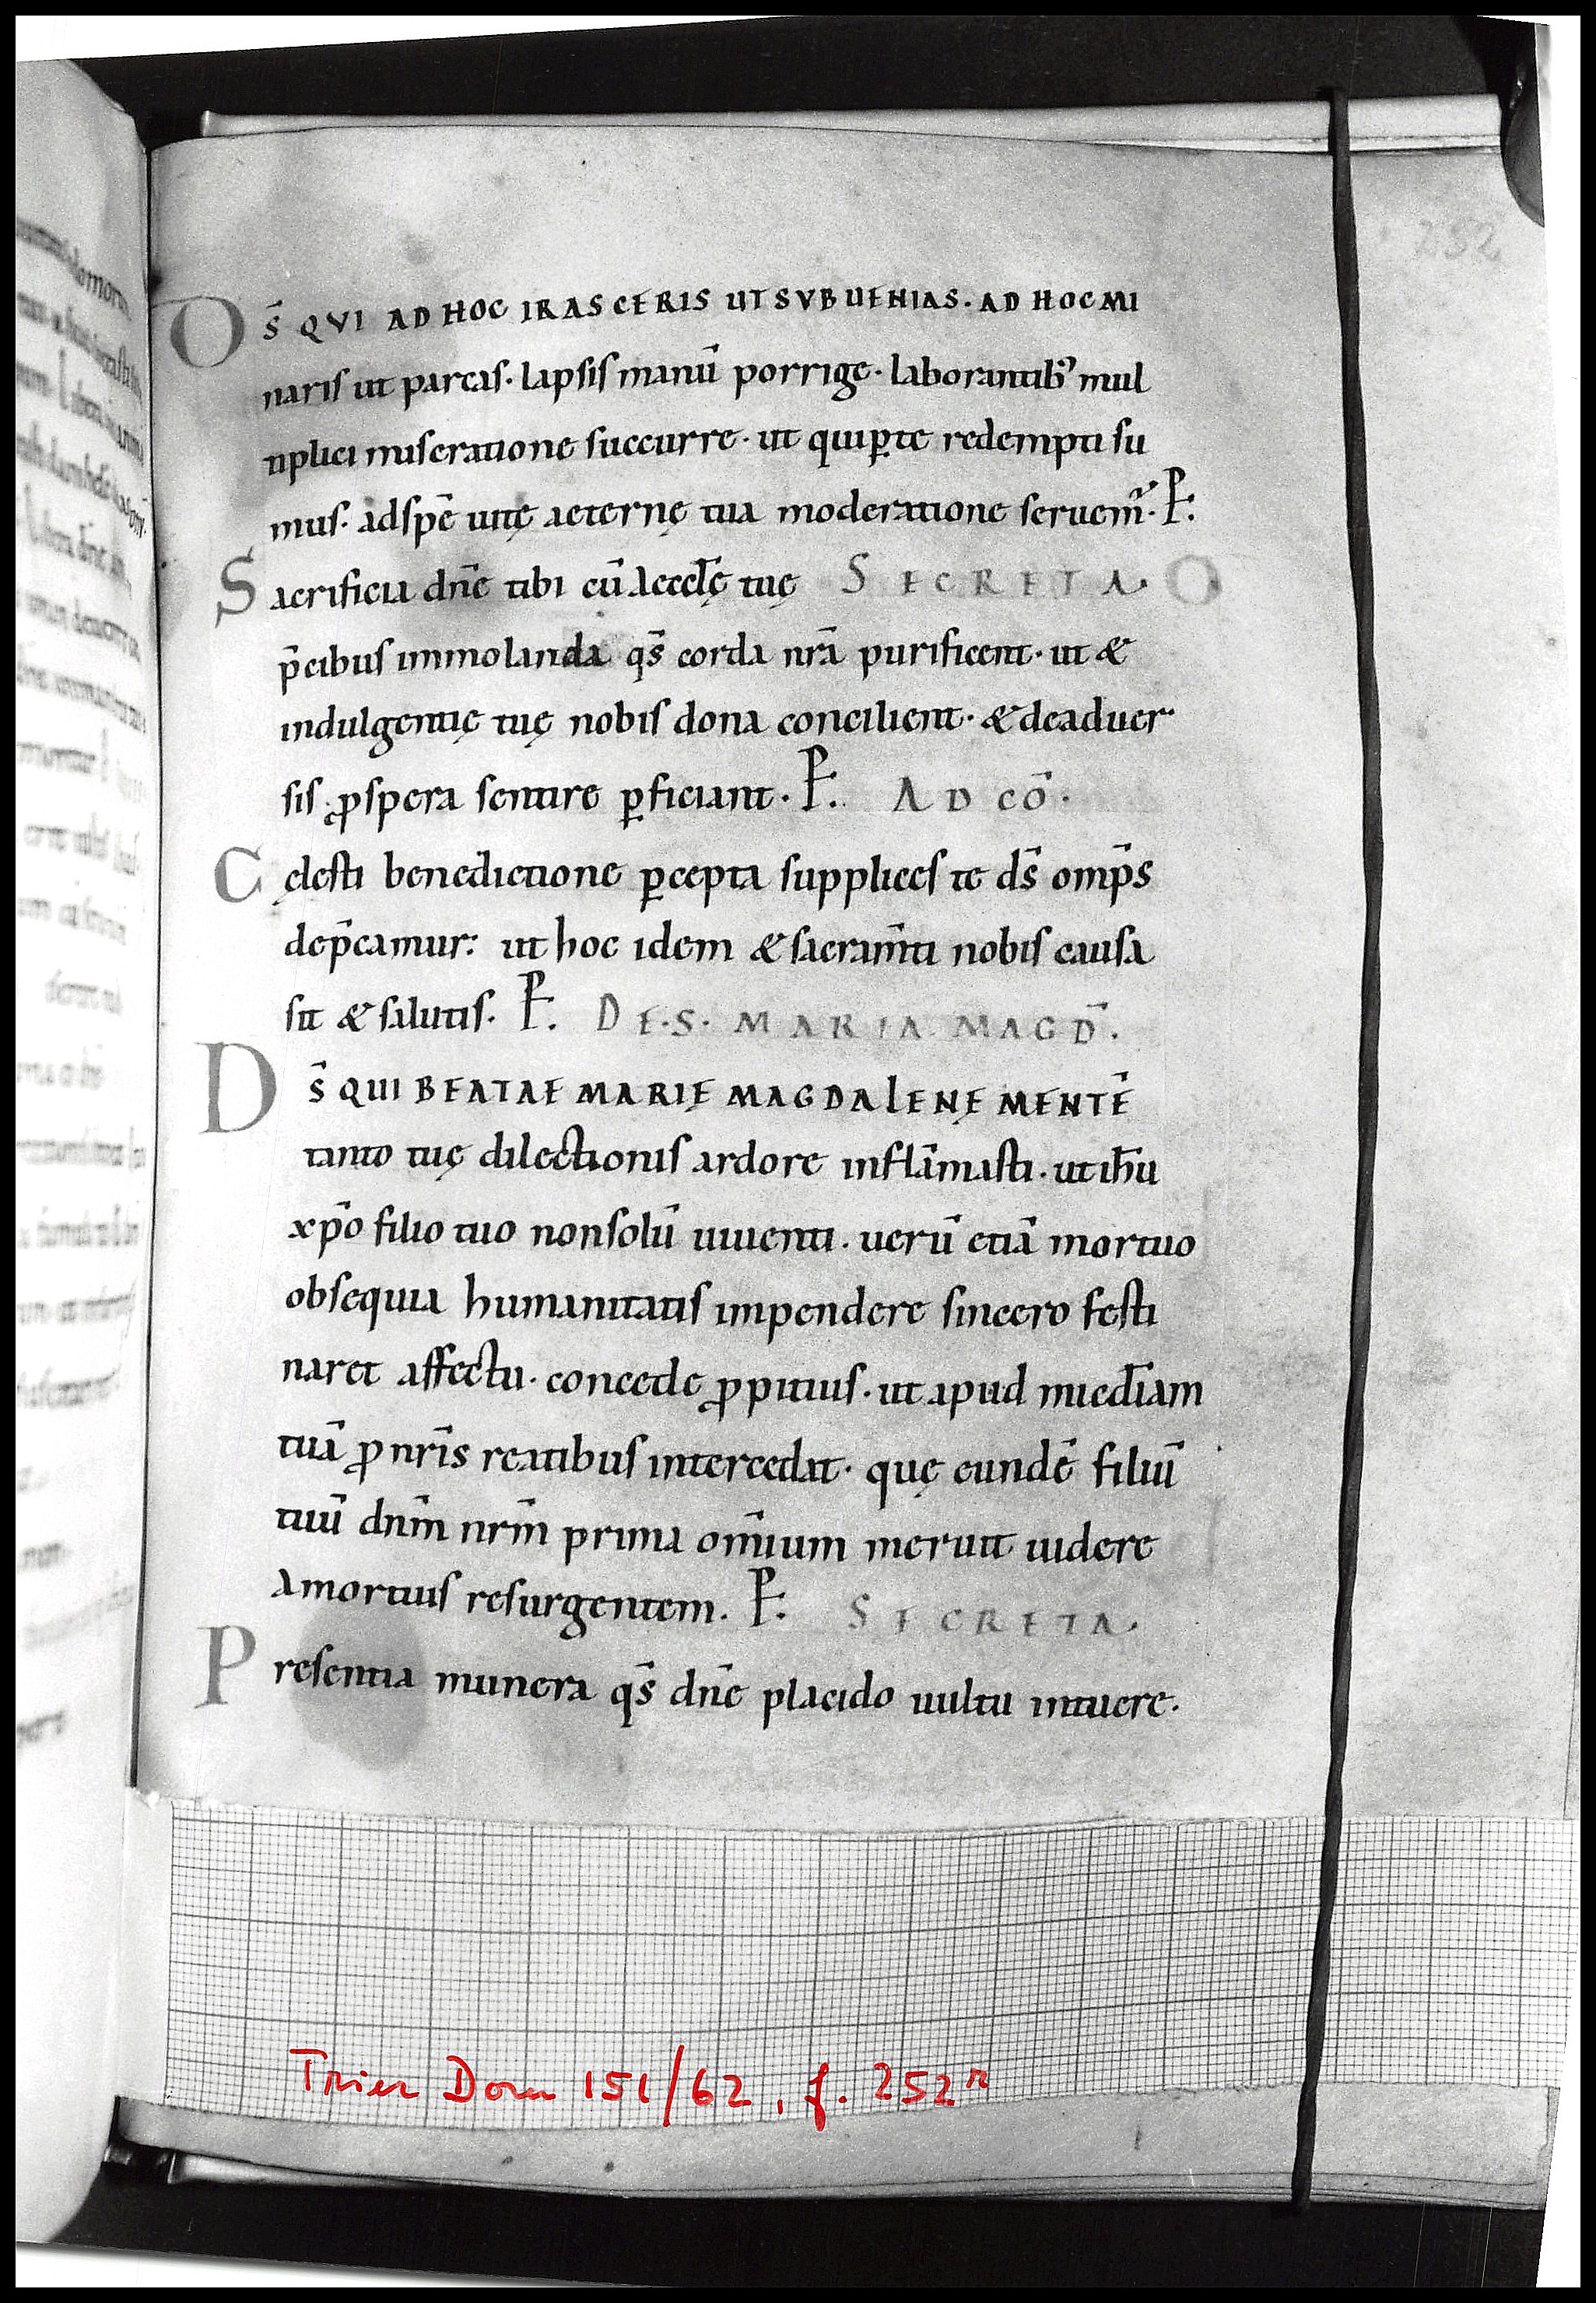 252
Ds̄ QVI AD HOC IRASCERIS UT SVBUENIAS. AD HOC MI
naris ut parcas· lapsis manū porrige· laborantibꝰ mul
tiplici miseratione succurre· ut qui ꝑte redempti su
mus· ad spē uitę aeternę tua moderatione seruem̃· P:
Sacrificia dn̄e tibi cū aeccl̄ę tuę SECRETA. O
p̄cibus immolanda qs̄ corda nrā purificent· ut &
indulgentię tuę nobis dona concilient· & de aduer
sis ꝓspera sentire ꝑficiant· P: AD CŌ.
Cęlesti benedictione ꝑcepta supplices te ds̄ omp̄s
dep̄camur: ut hoc idem & sacram̄ti nobis causa
sit & salutis· P: DE·S· MARIA MAGD̄.
Ds̄ QUI BEATAE MARIĘ MAGDALENĘ MENTĒ
tanto tuę dilectionis ardore inflāmasti· ut ih̄u
xp̄o filio tuo non solū uiuenti· uerū etiā mortuo
obsequia humanitatis impendere sincero festi
naret affectu· concede ꝓpitius· ut apud mīcdiam
tuā ꝓ nrīs reatibus intercedat· quę eundē filiū
tuū dnm̄ nrm̄ prima om̄ium meruit uidere
a mortuis resurgentem. P: SECRETA.
Presentia munera qs̄ dn̄e placido uultu intuere·
Trier Dom 151/62, f. 252r